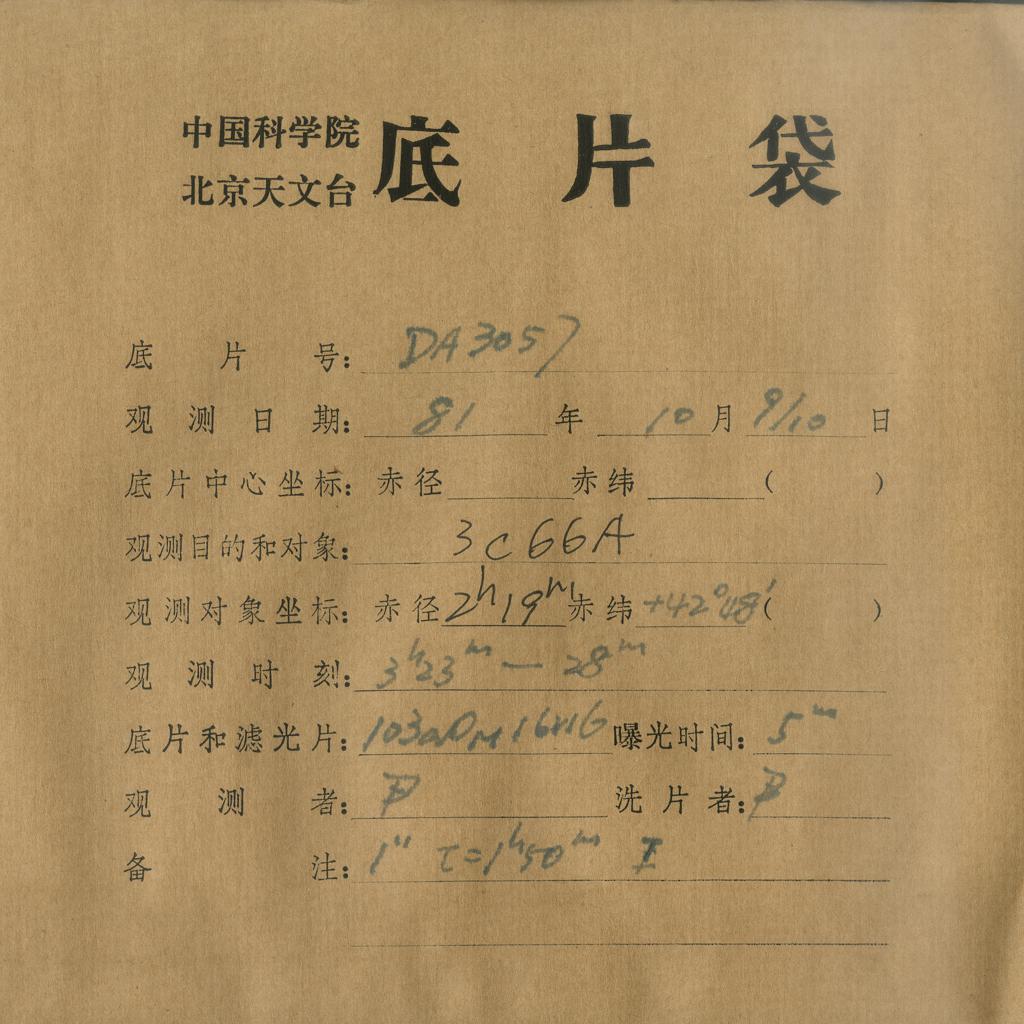 中国科学院
北京天文台
底片袋
底片号: DA3057
观测日期: 81年 10月 9/10日
底片中心坐标: 赤径 赤纬 ( )
观测目的和对象: 3C66A
观测对象坐标: 赤径 2h19m 赤纬 +42°48′ ( )
观测时刻: 3h23m — 28m
底片和滤光片: 103aO 16×16 曝光时间: 5m
观测者: 洗片者:
备注: 1" τ=1h50m I